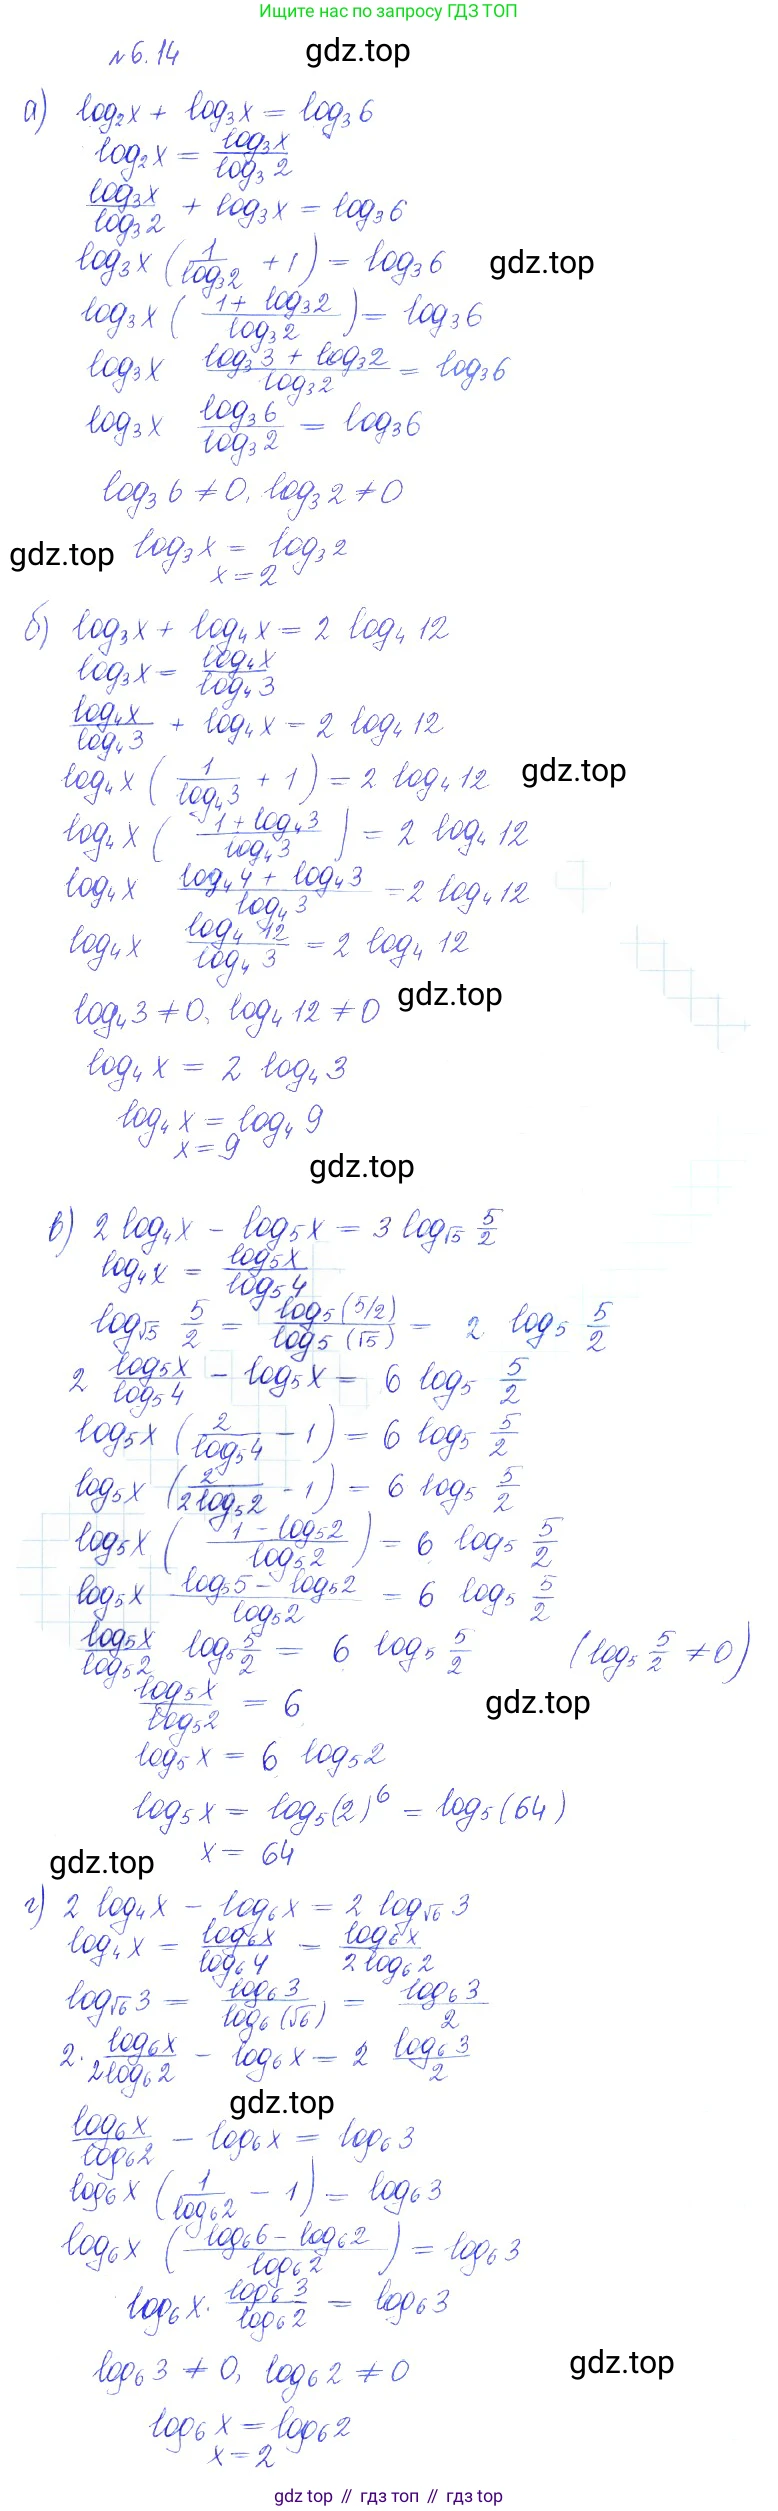 Ищите нас по запросу ГДЗ ТОП
№6.14 gdz.top
а) log₂x + log₃x = log₃6
log₂x = log₃x / log₃2
log₃x / log₃2 + log₃x = log₃6
log₃x (1 / log₃2 + 1) = log₃6 gdz.top
log₃x ((1 + log₃2) / log₃2) = log₃6
log₃x (log₃3 + log₃2) / log₃2 = log₃6
log₃x log₃6 / log₃2 = log₃6
log₃6 ≠ 0, log₃2 ≠ 0
gdz.top log₃x = log₃2
x = 2
б) log₃x + log₄x = 2 log₄12
log₃x = log₄x / log₄3
log₄x / log₄3 + log₄x = 2 log₄12
log₄x (1 / log₄3 + 1) = 2 log₄12 gdz.top
log₄x ((1 + log₄3) / log₄3) = 2 log₄12
log₄x (log₄4 + log₄3) / log₄3 = 2 log₄12
log₄x log₄12 / log₄3 = 2 log₄12
log₄3 ≠ 0, log₄12 ≠ 0 gdz.top
log₄x = 2 log₄3
log₄x = log₄9
x = 9
gdz.top
в) 2 log₄x − log₅x = 3 log_√5 5/2
log₄x = log₅x / log₅4
log_√5 5/2 = log₅(5/2) / log₅(√5) = 2 log₅ 5/2
2 log₅x / log₅4 − log₅x = 6 log₅ 5/2
log₅x (2 / log₅4 − 1) = 6 log₅ 5/2
log₅x (2 / 2log₅2 − 1) = 6 log₅ 5/2
log₅x ((1 − log₅2) / log₅2) = 6 log₅ 5/2
log₅x (log₅5 − log₅2) / log₅2 = 6 log₅ 5/2
log₅x / log₅2 log₅ 5/2 = 6 log₅ 5/2 (log₅ 5/2 ≠ 0)
log₅x / log₅2 = 6 gdz.top
log₅x = 6 log₅2
log₅x = log₅(2)⁶ = log₅(64)
x = 64
gdz.top
г) 2 log₄x − log₆x = 2 log_√6 3
log₄x = log₆x / log₆4 = log₆x / 2log₆2
log_√6 3 = log₆3 / log₆(√6) = log₆3 / 2
2 · log₆x / 2log₆2 − log₆x = 2 log₆3 / 2
gdz.top
log₆x / log₆2 − log₆x = log₆3
log₆x (1 / log₆2 − 1) = log₆3
log₆x ((log₆6 − log₆2) / log₆2) = log₆3
log₆x · log₆3 / log₆2 = log₆3
log₆3 ≠ 0, log₆2 ≠ 0 gdz.top
log₆x = log₆2
x = 2
gdz top // гдз топ // gdz top